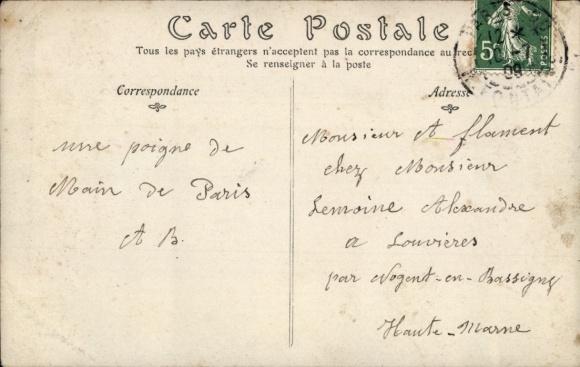 Carte Postale
Tous les pays étrangers n'acceptent pas la correspondance au
Se renseigner à la poste
Correspondance
Adresse
5c
POSTES
12
09
une poigne de
Main de Paris
A B.
Monsieur A flament
chez Monsieur
Lemoine Alexandre
a Louvières
par Nogent-en-Bassigny
Haute-Marne